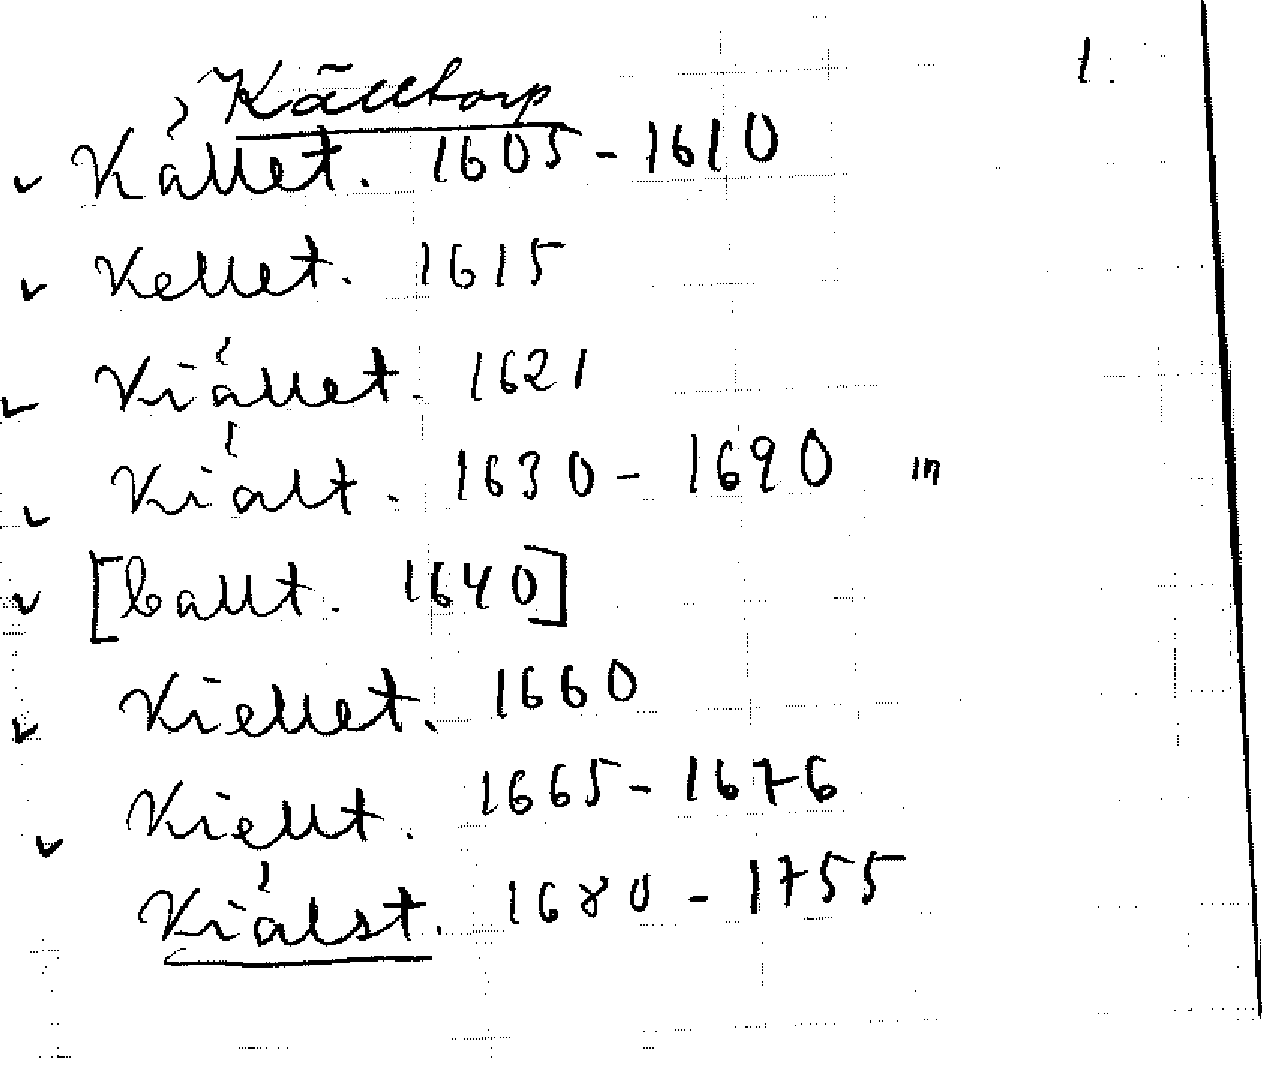 Källtorp 1.
Kållet. 1605 - 1610
Kellet. 1615
Kiållet. 1621
Kiålt. 1630 - 1690 in
[Callt. 1640]
Kiellet. 1660
Kiellt. 1665 - 1676
Kiålst. 1680 - 1755